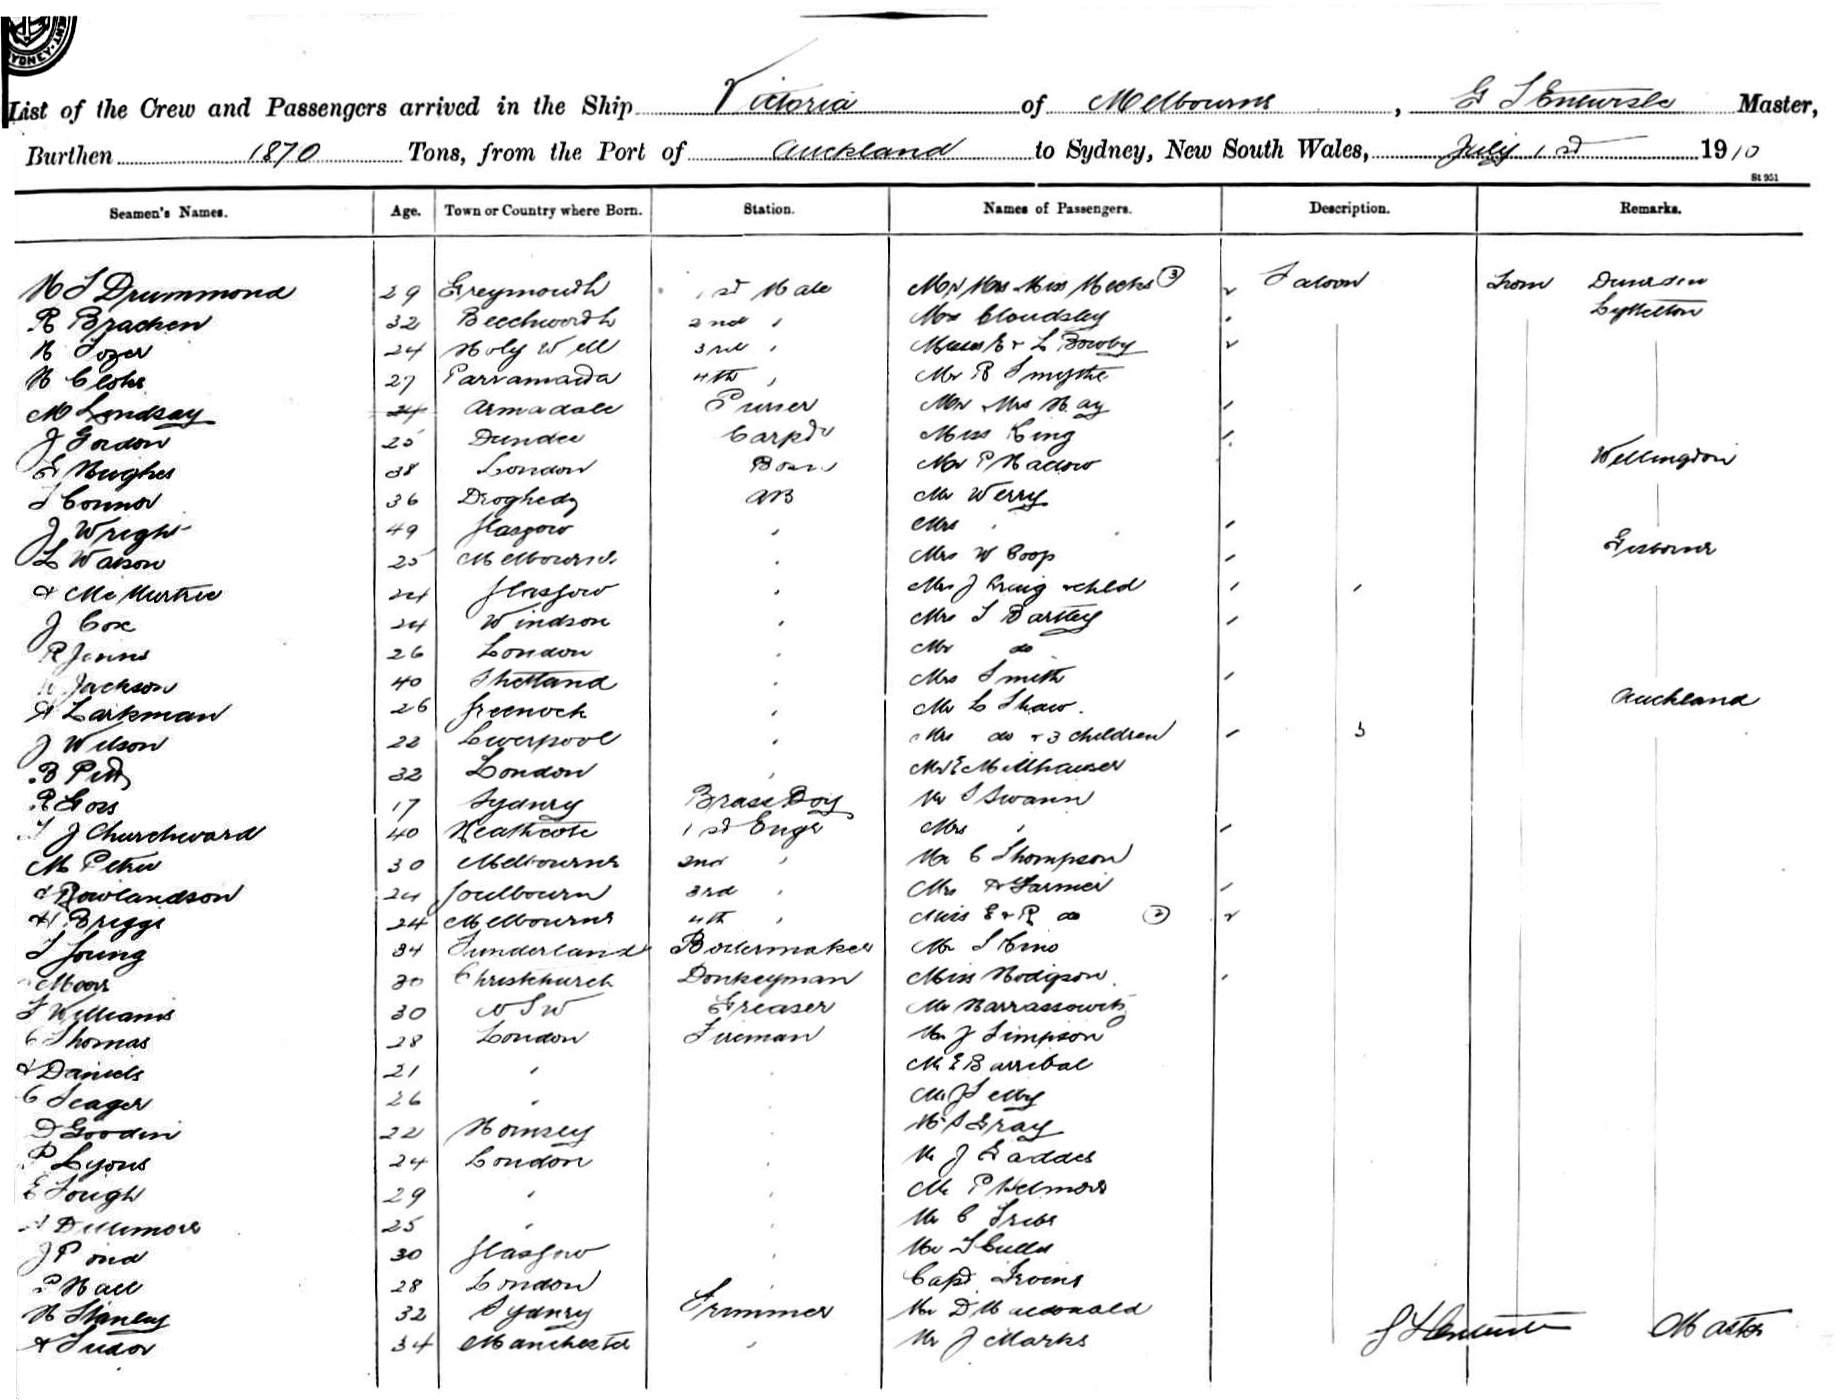 List of the Crew and Passengers arrived in the Ship Victoria of Melbourne, G S Entwisle Master,
Burthen 1870 Tons, from the Port of Auckland to Sydney, New South Wales, July 1st 1910
St 951
Seamen's Names. Age. Town or Country where Born. Station. Names of Passengers. Description. Remarks.
Drummond 29 Greymouth 1st Mate Mr Mrs Miss Meeks 3 Saloon From Dunedin
R Bracken 32 Beechworth 2nd " Mrs Cloudsley Lyttelton
H Tozer 24 Holy Well 3rd " Misses E & L Bowby
27 Parramatta 4th " Mr R Smythe
M Lyndsay 24 Armadale Purser Mr Mrs Hay
J Gordon 25 Dundee Carptr Miss King
Hughes 38 London Bosn Mr P Wellington
Connor 36 AB Mr Werry
J Wright 49 Glasgow " Mrs "
L Watson 25 Melbourne " Mrs W Coop Gisborne
McMurtrie 24 Glasgow " Mrs J Craig & child
J Cox 24 Windsor " Mrs Bartley
R 26 London " Mr do
Jackson 40 Shetland " Mrs Smith
Larkman 26 Greenock " Mr L Shaw. Auckland
J Wilson 22 Liverpool " Mrs do & 3 children 3
B 32 London " Mr E Millhauser
R Goss 17 Sydney Brass Boy Mr Swann
J Churchward 40 Heathcote 1st Engr Mrs "
M Petrie 30 Melbourne 2nd " Mr C Thompson
Rowlandson 24 Goulbourn 3rd " Mrs Farmer
Briggs 24 Melbourne 4th " Miss E & R do 2
Young 34 Sunderland Boilermaker Mr
Moor 30 Christchurch Donkeyman Miss Hodgson
Williams 30 NSW Greaser Mr Harrassowitz
C Thomas 28 London Fireman Mr J Simpson
Daniels 21 " Mr E Barribal
C Seager 26 " Mr J Selby
D Goodin 22 Hornsey Mr Gray
P Lyons 24 London Mr J Gaddes
E 29 " Mr P Helmore
Dillimore 25 " Mr C
J Pond 30 Glasgow Mr
P Hall 28 London Capt
H Stanley 32 Sydney Trimmer Mr D Macdonald
Tudor 34 Manchester " Mr J Marks
G S Entwisle Master